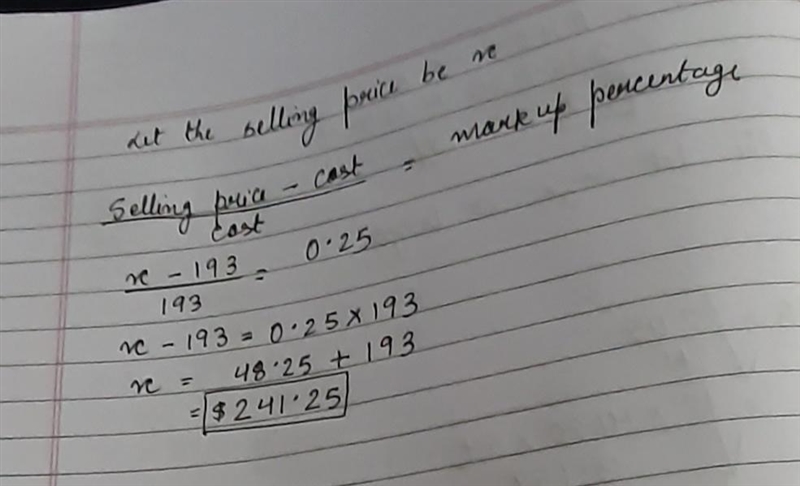 Let the selling price be x
Selling price - cost = markup percentage
cost
x - 193 = 0.25
193
x - 193 = 0.25 × 193
x = 48.25 + 193
= $241.25